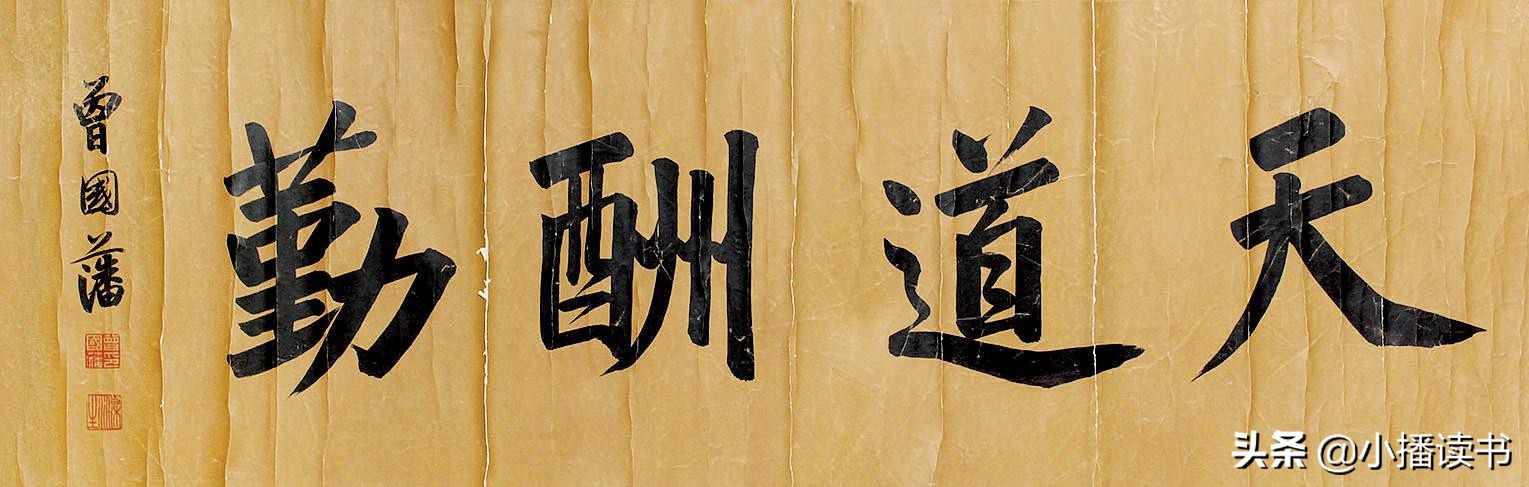 天道酬勤
曾國藩
头条 @小播读书